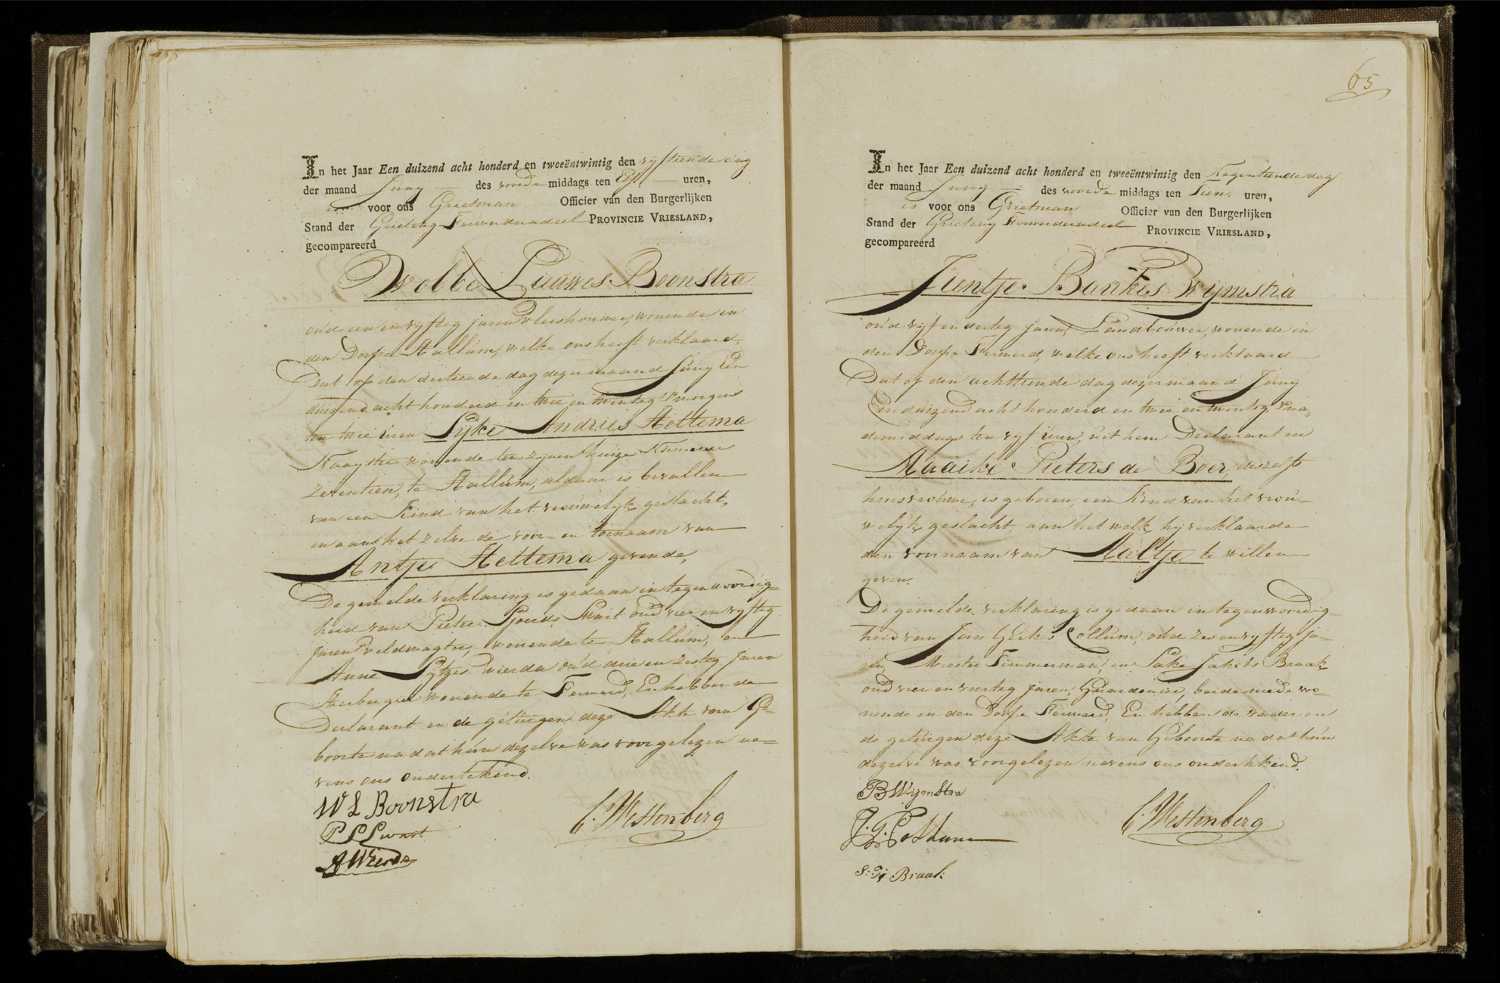 In het Jaar Een duizend acht honderd en tweeëntwintig den vyfteende dag
der maand Juny des voorde middags ten Elf uren,
voor ons Grietman Officier van den Burgerlijken
Stand der Grieteny Ferwerderadeel PROVINCIE VRIESLAND,
gecompareerd
Wobbe Laawes Boonstra
oud een en vyfteg jaren Vleeshouwer, wonende in
den Dorpe Hallum, welke ons heeft verklaard
Dat op den dertiende dag dezer maand Juny Een
duizend acht honderd en twee en twinteg 's morgens
ten twee uren Sijke Andries Hettema
Naayster wonende ten zynen huize Nummer
Zeventien, te Hallum, aldaar is bevallen
van een Kind van het vrouwelyk geslacht,
en aan het zelve de voor en toenaam van
Antje Hettema gevende,
De gemelde verklaring is gedaan in tegenwoordig-
heid van Pieter Sjoerds Swart oud vier en vyfteg
jaren veldwagter, wonende te Hallum, en
Anne Sytzes Wierda oud drie en zesteg jaren
Herbergier wonende te Ferwerd, En hebben de
Declarant en de getuigen deze Akte van Ge-
boorte na dat hun dezelve was voorgelezen ne-
vens ons ondertekend.
W L Boonstra
P S Swart
A Wierda
C. Westenberg
65
In het Jaar Een duizend acht honderd en tweeëntwintig den Negentiende dag
der maand Juny des voorde middags ten Tien uren,
is voor ons Grietman Officier van den Burgerlijken
Stand der Grieteny Ferwerderadeel PROVINCIE VRIESLAND,
gecompareerd
Jentje Bunkes Wymstra
oud vyf en derteg jaren, Landbouwer, wonende in
den Dorpe Ferwerd, welke ons heeft verklaard
Dat op den achttiende dag dezer maand Juny
Een duizend acht honderd en twee en twinteg, na
de middags ten vyf uren, uit hem Declarant en
Maaike Pieters de Boer, deszelfs
huisvrouw, is geboren, een Kind van het vrou-
welyk geslacht aan het welk hy verklaarde
den voornaam van Aaltje te willen
geven.
De gemelde verklaring is gedaan in tegenwoordig-
heid van Jan Gerks Kollum, oud zes en vyfteg ja-
ren, Meester Timmerman, en Sake Jakobs Braak
oud vier en veerteg jaren, Gardenier, beide mede wo-
nende in den Dorpe Ferwerd, En hebben de vader en
de getuigen deze Akte van Geboorte na dat hun
dezelve was voorgelezen nevens ons ondertekend.
B Wymstra
J. G. Kollum
S: J: Braak
C. Westenberg